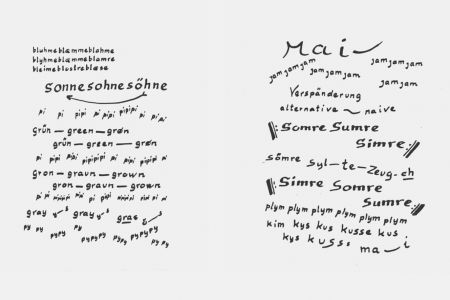 bluhmeblæmmeblohme
blyhmeblæmmeblomre
bleimeblustreblæse
Sonnesohnesöhne
pi pi pipi pi pipi pipipi pi pi pi
grün — green — grøn
grün — green — grøn
pi pipi pi pipi pipipipi pi pipipi pi pi
gron — graun — grown
gron — graun — grown
gray
gray
gras
py py pypy py pypypy pypy pypypy py
Mai
jamjamjam
jamjamjam
jamjamjam
jamjamjam
Verspänderung
alternative ~ naive
Somre Sumre
Simre
sômre Syl — te — Zeug — ch
Simre Somre
Sumre
plym plym plym plym plym plym
kim kys kus kusse kus
kys kuss
ma i